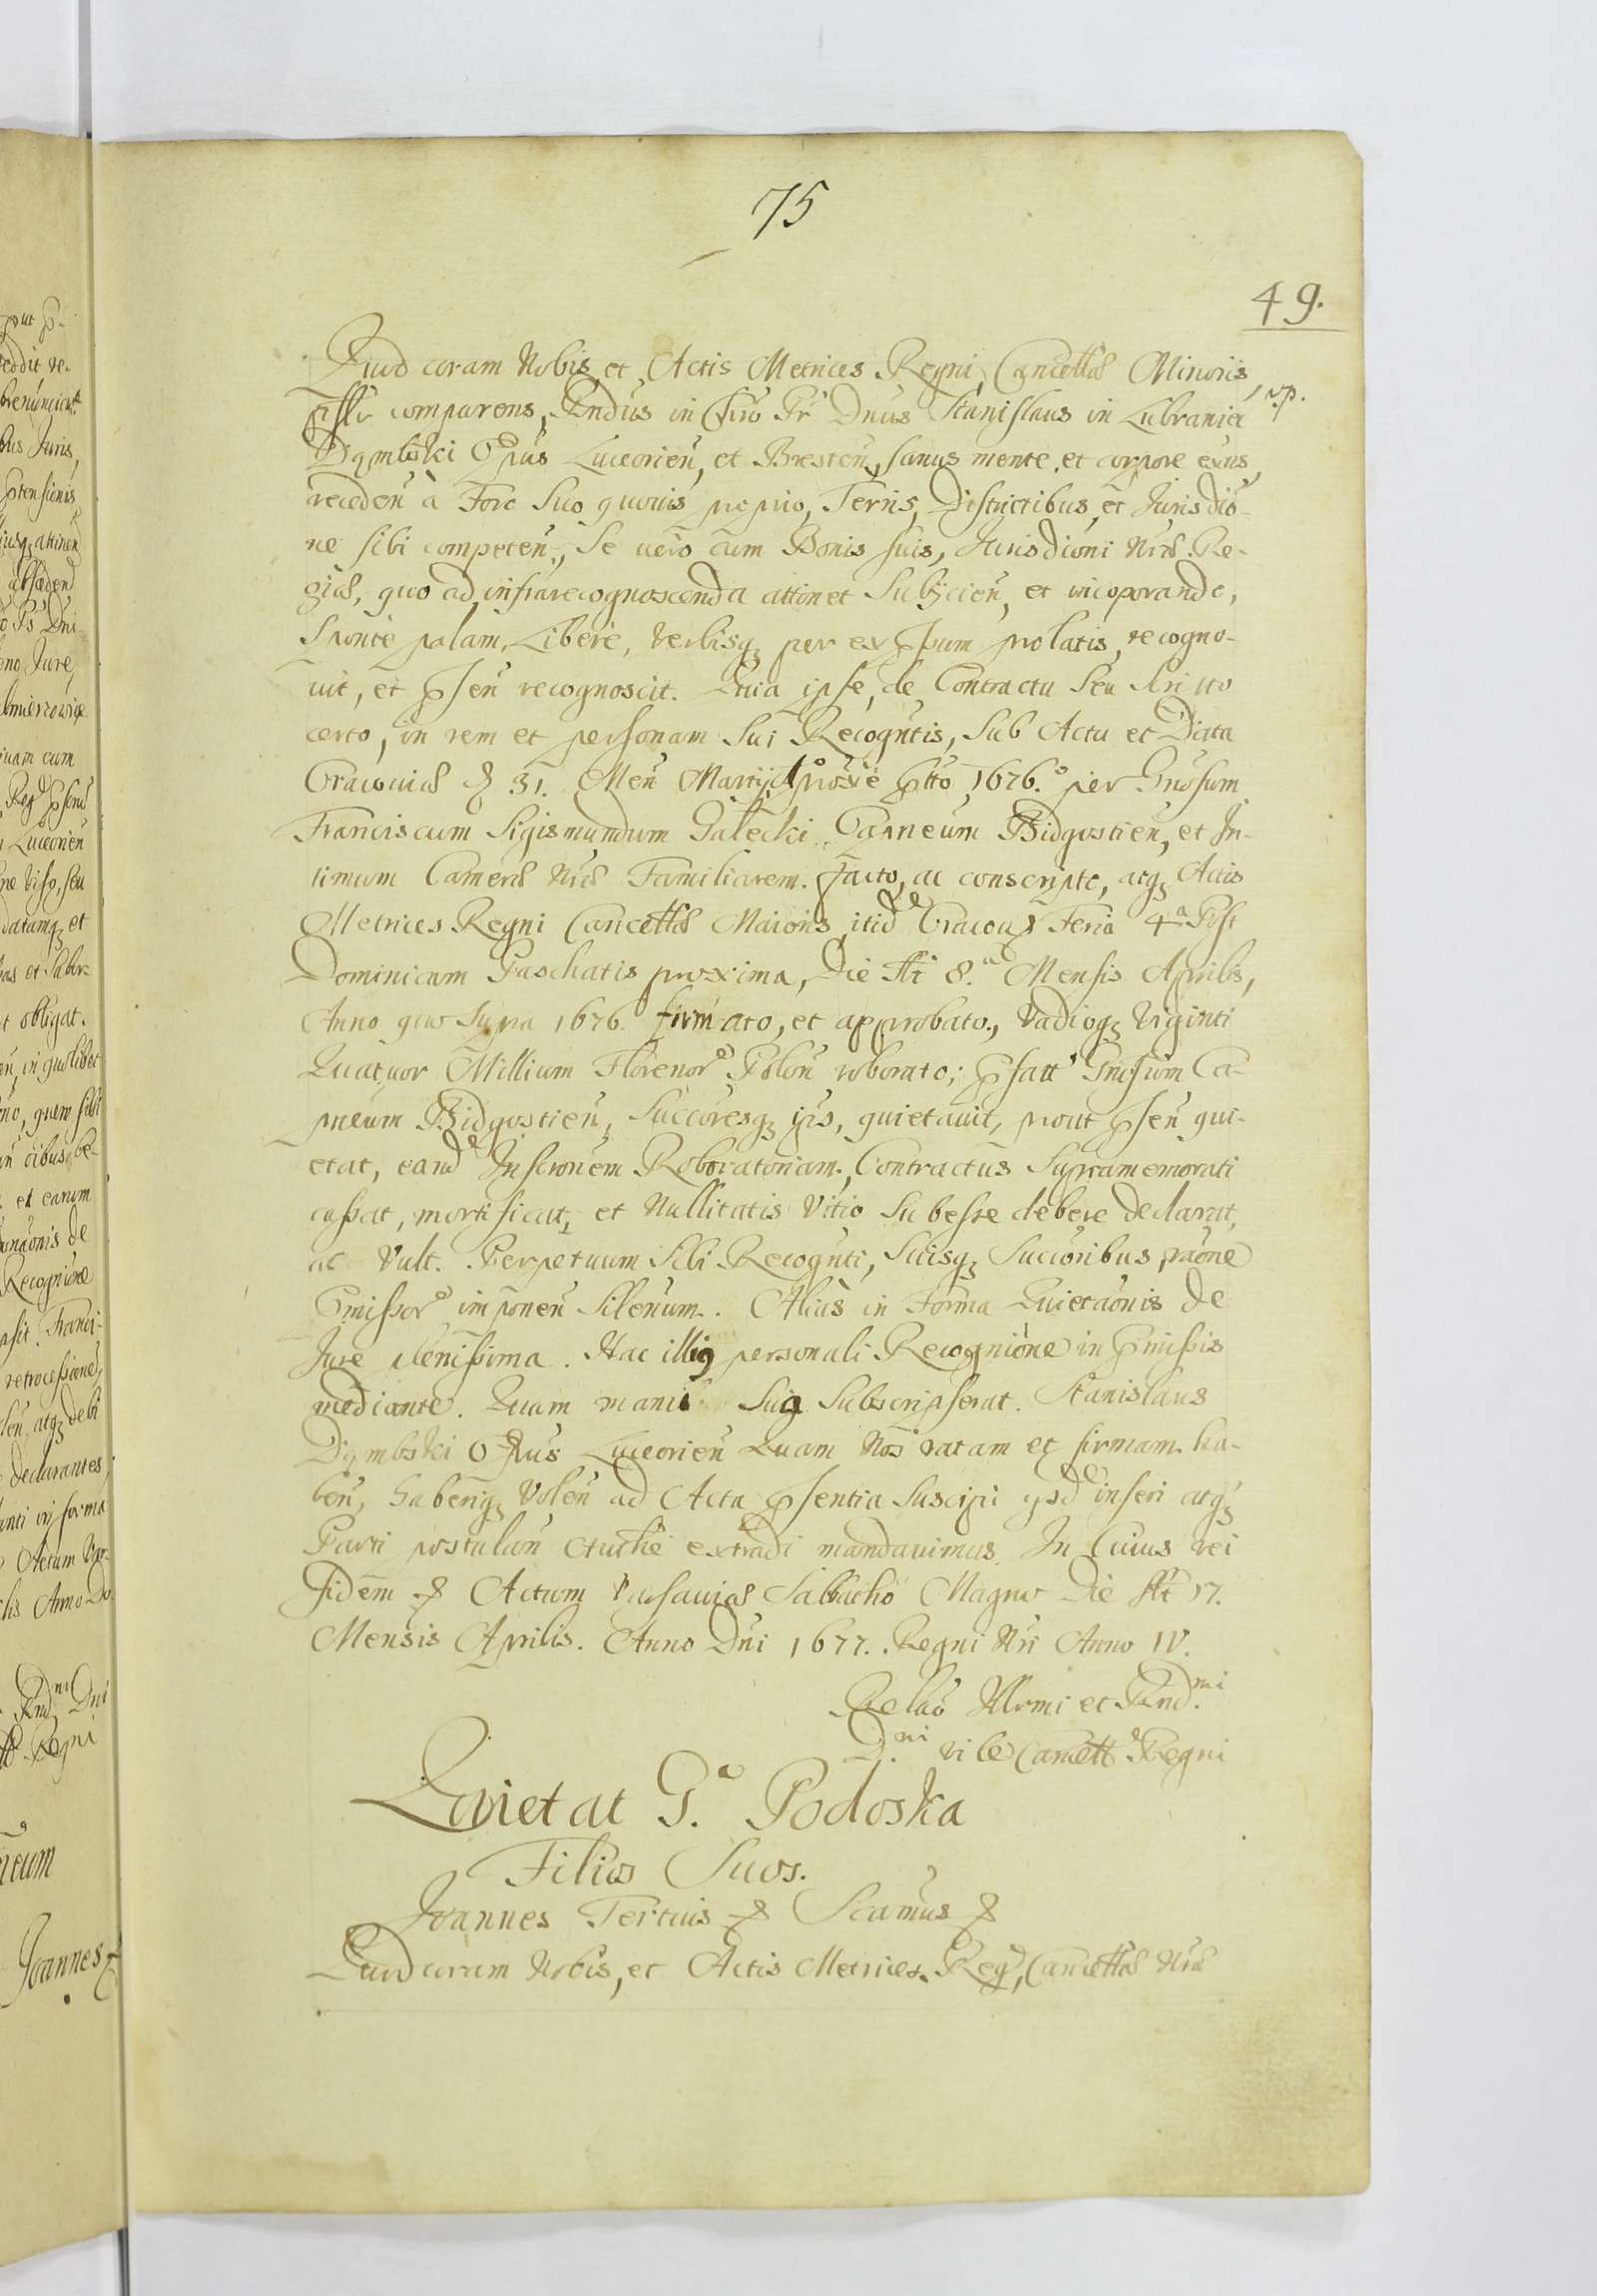 75
49.
Quod coram Nobis et Actis Metrices Regni Cancellae Minoris, vp.
comparens, Rndus in Chro Pr Dnus Stanislaus in Lubraniec
Dąmbski Eppus Luceorien, et Bresten, sanus mente et corpore exns,
receden à Foro Suo quouis proprio, Terris, Districtibus, et Jurisdio-
ne sibi competen, Se uero cum Bonis suis, Jurisdioni Nrae Re-
giae, quo ad infrarecognoscenda attinet Subijcien, et incorporando,
Sponte palam, Libere, verbisq per expssum prolatis, recogno-
uit, et pnsen recognoscit. Quia ipse, de Contractu Seu scripto
certo, in rem et personam Sui Recogntis, Sub Actu et Data
Cracouiae 31. Men Martij Ao proxe ptto 1676.o per Gnosum
Franciscum Sigismundum Gałecki Capneum Bidgostien, et In-
timum Camerae Nrae Familiarem. facto, ac conscripto, atq Actis
Metrices Regni Cancellae Maioris itid Cracouiae Feria 4a Post
Dominicam Paschatis proxima, Die stt 8.a Mensis Aprilis,
Anno quo Supra 1676 firmato, et approbato, Vadioq Viginti
Quatuor Millium Florenor Polon roborato; psatt Gnosum Ca-
pneum Bidgostien, Succoresq ips, quietauit, prout pnsen qui-
etat, eand Inscrionem Roboratoriam, Contractus Supramemorati
cassat, mortificat, et Nullitatis Vitio Subesse debere declarat,
ac Vult. Perpetuum Sibi Recognti, Suisq Succoribus, raone
Pmissor imponen Silenum. Alias in Forma Quietaonis de
Jure plenissima. Hac illius personali Recognione in Pmissis
mediante. Quam manu Sua Subscripserat. Stanislaus
Dąmbski Eppus Luceorien Quam Nos ratam et firmam ha-
ben, haberiq Volen ad Acta pnsentia Suscipi ysd inseri atq
Parti postulan authe extradi mandauimus. In Cuius rei
fidem Actum Varsauiae Sabbatho Magno Die stt 17.
Mensis Aprilis. Anno Dni 1677. Regni Nri Anno IV.
Relao Illrmi et Rnd.mi
D.ni vice Cancell Regni
Quietat G. Podoska
Filios Suos.
Joannes Tertius Scamus
Quod coram Nobis, et Actis Metrices Reg, Cancellae Nrae